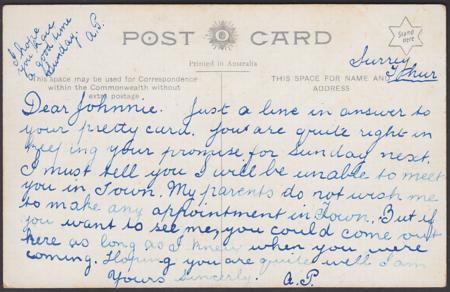 I hope
you have
a good time
Sunday.
A.P.
POST CARD
Stamp
here
Printed in Australia
This space may be used for Correspondence
within the Commonwealth without
extra postage
THIS SPACE FOR NAME AND
ADDRESS
Surrey
Thur
Dear Johnnie. Just a line in answer to
your pretty card. You are quite right in
keeping your promise for Sunday next.
I must tell you I will be unable to meet
you in Town. My parents do not wish me
to make any appointment in Town. But if
you want to see me, you could come out
here as long as I knew when you were
coming. Hoping you are quite well I am
Yours sincerly. A.P.